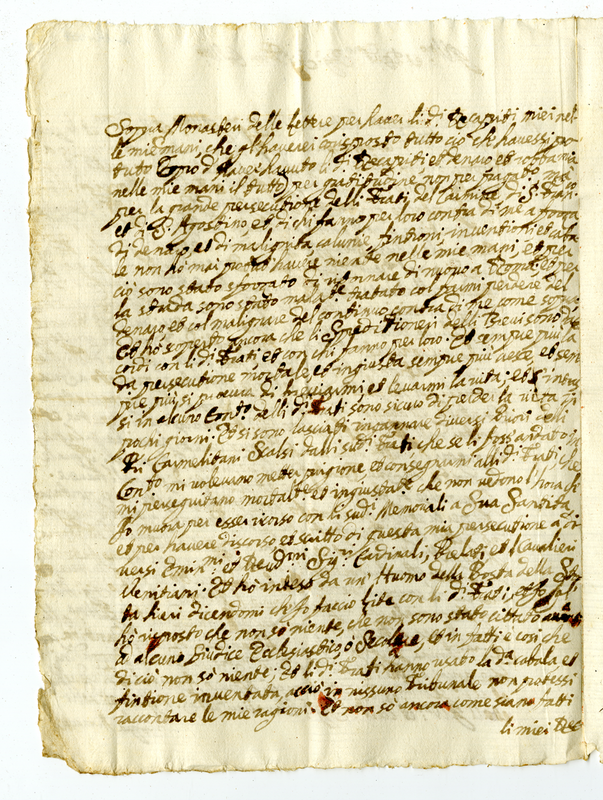 Sopra Monasteri delle lettere per haver li di Recapiti miei nel
le mie mani, che gl'haverei corrisposto tutto ciò ch'havessi po
tuto doppo d'haver havuto li di Recapiti et denaro et robba mia
nelle mie mani il tutto per gratitudine, non per pagato ma
per la grande persecutione delli Frati del Carmine di S. Fran.co
et di S. Agostino et di chi fanno per loro contra di me a forza
di denaro et di malignità calunie, fintioni, inventioni et caba
le non ho mai potuto havere niente nelle mie mani, et per
ciò sono stato sforzato di ritornare di nuovo a Roma, et per
la strada sono stato malate tratato col farmi perdere del
denaro et col malignare del continuo contra di me come sopra
Et ho scoperto ancora che li Speditioneri delli Brevi sono d'ac
cordi con li di Frati et con chi fanno per loro. Et sempre più la
da persecutione mortale et ingiusta sempre più cresce, et sem
pre più si procura di levarmi la vita; et s'intras
si in alcuno Conto delli di Frati sono sicuro di perder la vita in
pochi giorni. Et si sono lasciati ingannare diversi Priori delli
Pri Carmelitani Scalsi dalli sudi Frati che se li foss'andato in
Conto mi volevano metter prigione et consegnarmi alli di Frati, che
mi perseguitano mortalte et ingiustate che non vedono l'hora ch'
Io mora per esser ricorso con li sudi Memoriali a Sua Santità
et per havere discorso et scritto di questa mia persecutione a di
versi Eminmi et Revdmi Sigri Cardinali, Prelati, et Cavalieri
Venitiani. Et ho inteso da un'Huomo della Posta della
hieri dicendomi ch'Io faccio lite con li di Frati, et Io
hò risposto che non sò niente, che non sono stato cittato
d'alcuno Giudice Ecclesiastico, ò Secolare, et in fatti è così che
di ciò non sò niente; Et li di Frati hanno usato la da cabala et
fintione inventata, acciò in nissuno Tribunale non potessi
raccontare le mie ragioni. Et non sò ancora come siano fatti
li miei Rec